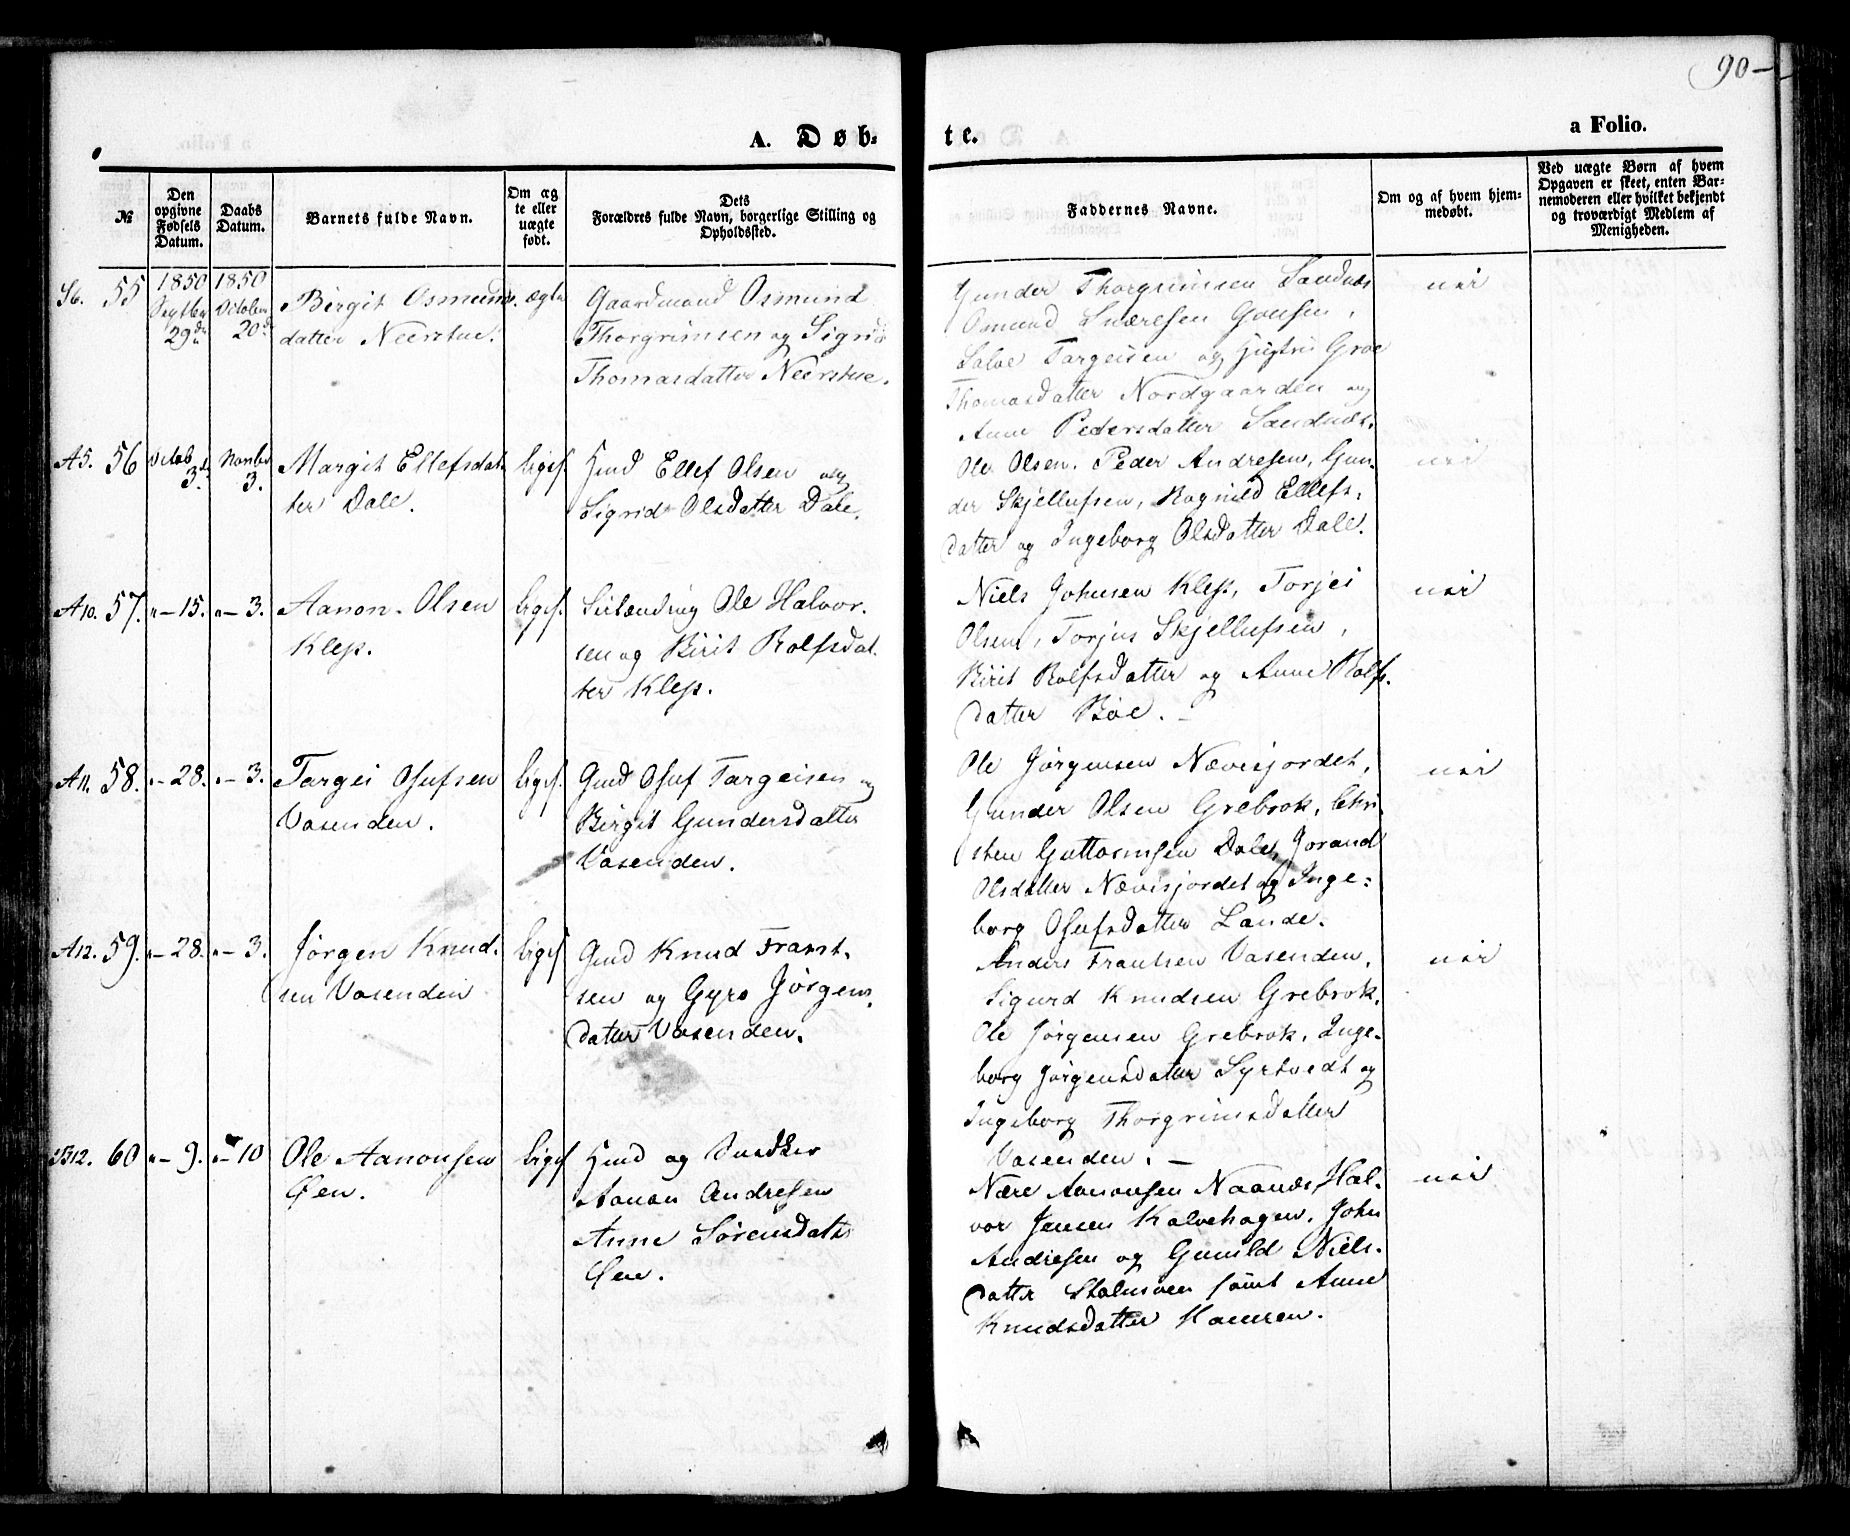 90-
A. Døb- te.
a Folio.
№
Den opgivne Fødsels Datum.
Daabs Datum.
Barnets fulde Navn.
Om ægte eller uægte født.
Dets Forældres fulde Navn, borgerlige Stilling og Opholdssted.
Faddernes Navne.
Om og af hvem hjemmedøbt.
Ved uægte Børn af hvem Opgaven er skeet, enten Barnemoderen eller hvilket bekjendt og troværdigt Medlem af Menigheden.
S6. 55
1850 Septber 29de
1850 October 20de
Birgit Osmunds-
datter Neerstue.
ægte
Gaardmand Osmund
Thorgrimsen og Sigrid
Thomasdatter Neerstue.
Gunder Thorgrimsen Sandnæs
Osmund Sværesen
Salve Targeisen og Groe
Thomasdatter Nordgaarden og
Anne Pedersdatter Sandnæs.
nei
A5. 56
Octob 3de
Novbr 3.
Margit Ellefsdat-
ter Dale.
liges.
Hmd Ellef Olsen og
Sigrid Olsdatter Dale.
Ole Olsen, Peder Andresen, Gun-
der Skjellufsen, Ragnild Ellefs-
datter og Ingeborg Olsdatter Dale.
nei
A10. 57.
"- 15.
"- 3.
Aanon Olsen
Klep.
liges.
Ole Halvor-
sen og Birit Rolfsdat-
ter Klep.
Niels Johnsen Klep, Torjei
Olsen, Torjus Skjellufsen,
Birit Rolfsdatter og Anne Rolfs-
datter Bøe. -
nei
A11. 58.
"- 28.
"- 3.
Targei Osufsen
Vasenden.
liges.
Gmd Osuf Targeisen og
Birgit Gundersdatter
Vasenden.
Ole Jørgensen Nævisjordet,
Gunder Olsen Grebrok, Chri-
sten Guttormsen Dale, Jorand
Olsdatter Nævisjordet og Inge-
borg Osufsdatter Lande.
nei
A12. 59.
"- 28.
"- 3.
Jørgen Knud-
sen Vasenden
liges
Gmd Knud Frant-
sen og Gyro Jørgens-
datter Vasenden.
Anders Frantsen Vasenden,
Sigurd Knudsen Grebrok,
Ole Jørgensen Grebrok, Inge-
borg Jørgensdatter Syrtvedt og
Ingeborg Thorgrimsdatter
Vasenden. -
nei
B12. 60
"- 9.
"- 10
Ole Aanonsen
Øen.
liges
Hmd og Snedker
Aanon Andresen
Anne Sørensdatr
Øen.
Nære Aanonsen Naanæs, Hal-
vor Jensen Kalvehagen, John
Andresen og Gunild Niels-
datter samt Anne
Knudsdatter
nei